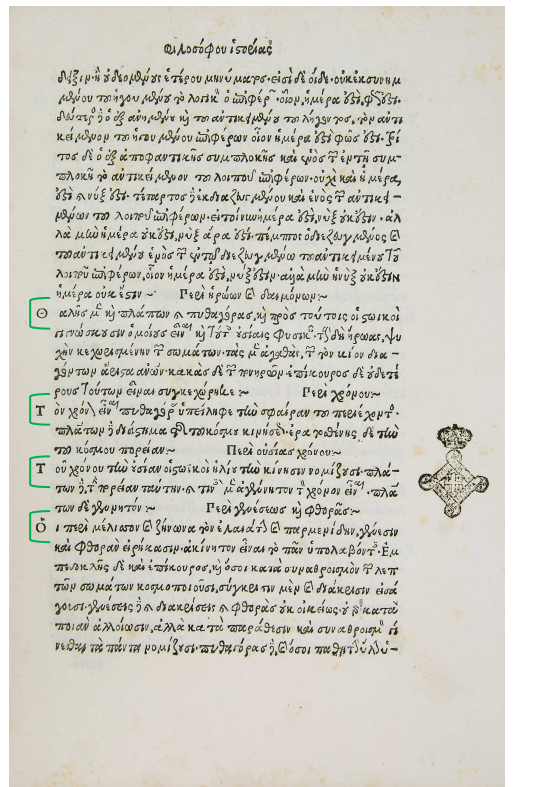 Φιλοσόφου ἱστορίας
δεῖξιν ἡγουμένου ἑτέρου μηνύματος. εἰσὶ δὲ οἵδε. ὁ ἐκ συνημ
μένου τοῦ ἡγουμένου τὸ λοιπὸν ἐπιφέρων. οἷον, ἡμέρα ἐστί, φῶς ἐστι.
δεύτερος ὁ ἐξ συνημμένου καὶ τοῦ ἀντικειμένου τοῦ λήγοντος, τὸν ἀντι
κείμενον τοῦ ἡγουμένου ἐπιφέρων οἷον ἡμέρα ἐστὶ φῶς ἐστι. τρί
τος δὲ ὁ ἐξ ἀποφαντικῆς συμπλοκῆς καὶ ἑνὸς τῶν ἐν τῇ συμ-
πλοκῇ τὸ ἀντικείμενον τοῦ λοιποῦ ἐπιφέρων. οὐχὶ καὶ ἡμέρα,
ἐστὶ καὶ νύξ ἐστι. τέταρτος ὁ ἐκ διαζευγμένου καὶ ἑνὸς τῶν ἀντικει-
μένων τοῦ λοιποῦ ἐπιφέρων. ἤτοι νῦν ἡμέρα ἐστί, νὺξ οὐκ ἔστιν. ἀλ
λὰ μὴν ἡμέρα οὐκ ἔστι, νὺξ ἄρα ἐστί. πέμπτος ὁ διεζευγμένος καὶ
τοῦ ἀντικειμένου ἑνὸς τῶν ἐπιδιεζευγμένω τοῦ ἀντικειμένου τοῦ
λοιποῦ ἐπιφέρων, οἷον ἡμέρα ἐστί, νὺξ ἐστιν. ἀλλὰ μὴν ἡ νὺξ οὐκ ἔστιν
ἡμέρα οὐκ ἔστιν ~ Περὶ ἡρώων καὶ δαιμόνων:~
Θαλῆς μὲν καὶ πλάτων καὶ πυθαγόρας, καὶ πρὸς τούτοις οἱ στωικοὶ
γινώσκουσιν ὁμοίους εἶναι καὶ τούτους οὐσίας φυσικάς. τοὺς δὲ ἥρωας, ψυ
χὴν κεχωρισμένην τῶν σωμάτων. τὰς μὲν ἀγαθάς, τῶν τὸν βίον δια-
γόντων ἄριστα ἀνῶν. κακὰς δὲ τῶν πονηρῶν. ἐπίκουρος δὲ οὐδετέ
ρους τούτων εἶναι συγκεχώρηκε:~ Περὶ χρόνου:~
Τὸν χρόνον εἶναι πυθαγόρας ὑπείληφε τὴν σφαῖραν τοῦ περιέχοντος.
πλάτων δὲ διάστημα τῆς τοῦ κόσμου κινήσεως. ἐρατοσθένης δὲ τὴν
τοῦ κόσμου πορείαν:~ Περὶ οὐσίας χρόνου:~
Τοῦ χρόνου τὴν οὐσίαν οἱ στωικοὶ ἡλίου τὴν κίνησιν νομίζουσι. πλά-
των δὲ, τὴν πορείαν ταύτην. καὶ τινὲς μὲν ἀγένητον τὸν χρόνον εἶναι. πλά
των δὲ γενητόν:~ Περὶ γενέσεως καὶ φθορᾶς:~
Οἱ περὶ μέλισσον καὶ ζήνωνα τὸν ἐλεάτην καὶ παρμενίδην, γένεσιν
καὶ φθορὰν εἰρήκασιν. ἀκίνητον εἶναι τὸ πᾶν ὑπολαβόντες. Ἐμ
πεδοκλῆς δὲ καὶ ἐπίκουρος, καὶ ὅσοι κατὰ συναθροισμὸν τῶν λεπ
τῶν σωμάτων κοσμοποιοῦσι, σύγκρισιν μὲν καὶ διάκρισιν εἰσά
γουσι. γενέσεις δὲ καὶ διακρίσεις καὶ φθορὰς οὐκ οἰκείως. οὐ γὰρ κατὰ
ποιὰν ἀλλοίωσιν, ἀλλὰ κατὰ παράθεσιν καὶ συναθροισμὸν γί
νεσθαι τὰ πάντα νομίζουσι. πυθαγόρας δὲ, καὶ ὅσοι παθητὴν ὕλην ὑ-